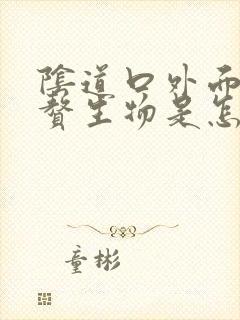 陰道口外面
贅生物是怎
童彬